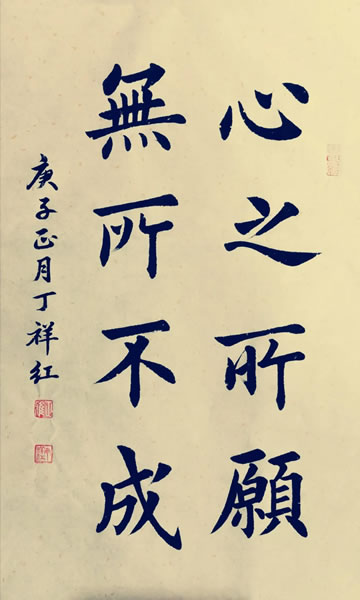 心之所願
無所不成
庚子正月丁祥红